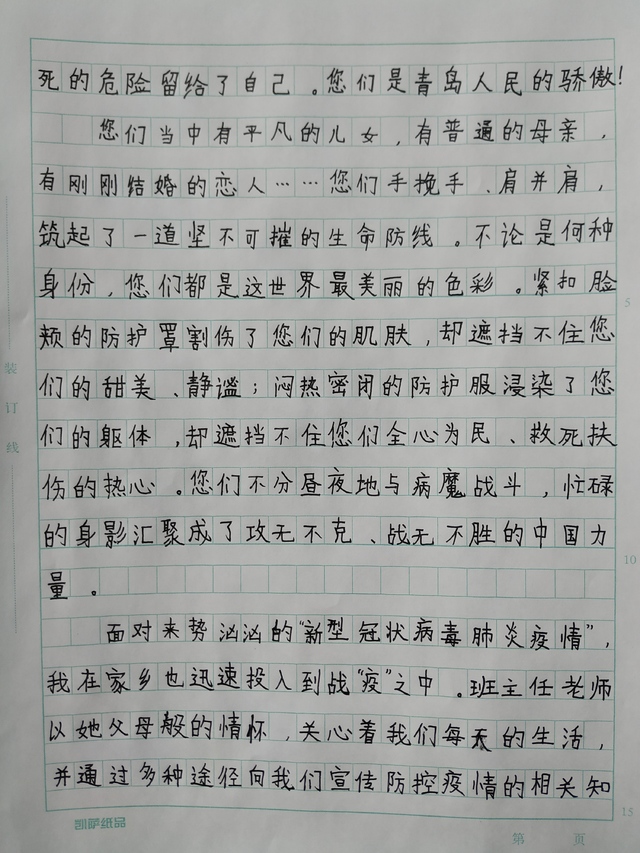 死的危险留给了自己。您们是青岛人民的骄傲!
您们当中有平凡的儿女，有普通的母亲，
有刚刚结婚的恋人……您们手挽手、肩并肩，
筑起了一道坚不可摧的生命防线。不论是何种
身份，您们都是这世界最美丽的色彩。紧扣脸
颊的防护罩割伤了您们的肌肤，却遮挡不住您
们的甜美、静谧；闷热密闭的防护服浸染了您
们的躯体，却遮挡不住您们全心为民、救死扶
伤的热心。您们不分昼夜地与病魔战斗，忙碌
的身影汇聚成了攻无不克、战无不胜的中国力
量。
面对来势汹汹的“新型冠状病毒肺炎疫情”，
我在家乡也迅速投入到战“疫”之中。班主任老师
以她父母般的情怀，关心着我们每天的生活，
并通过多种途径向我们宣传防控疫情的相关知
装
订
线
5
10
15
凯萨纸品
第 页